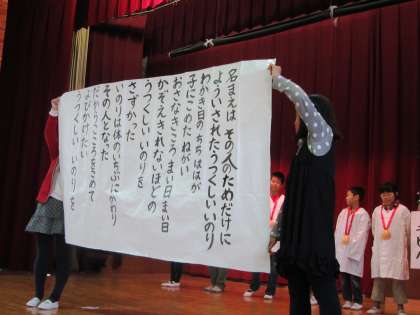 名まえは その人のためだけに
よういされたうつくしいいのり
わかき日の ちちははが
子にこめた ねがい
おさなきころ まい日 まい日
かぞえきれないほどの
うつくしい いのりを
さずかった
いのりは体のいちぶにかわり
その人となった
だから こころをこめて
よびかけたい
うつくしい いのり を